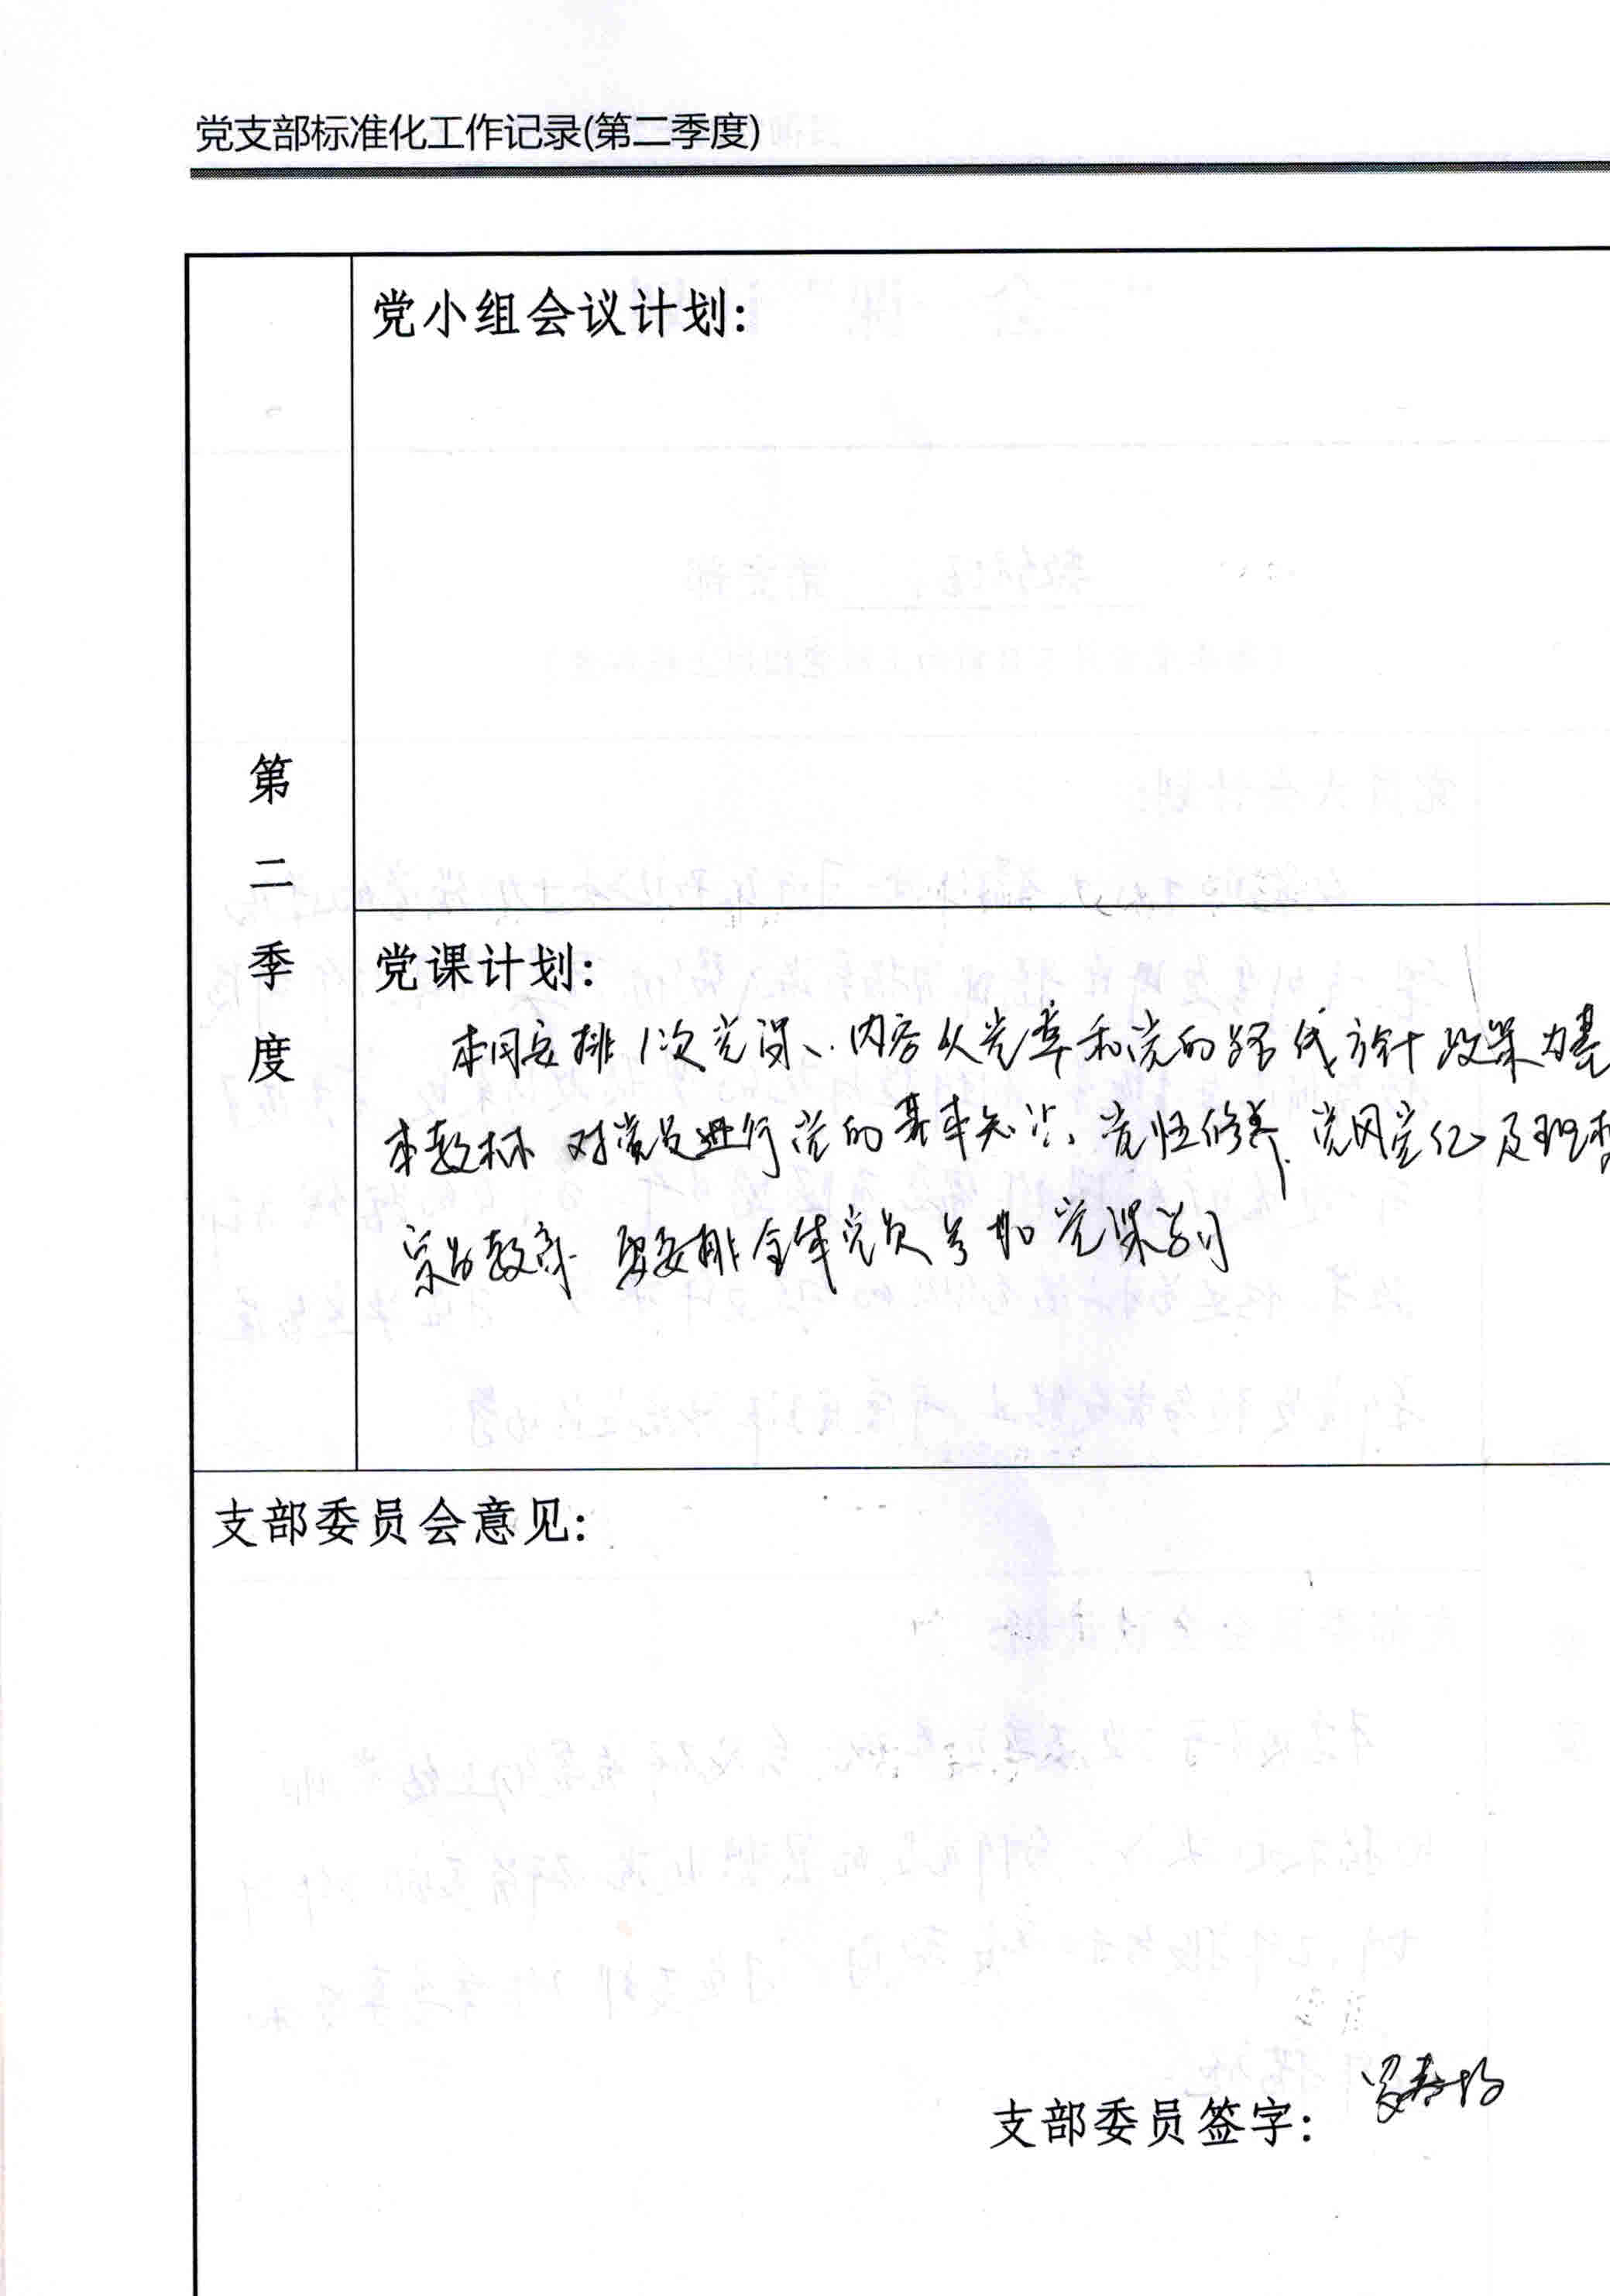 党支部标准化工作记录(第二季度)
党小组会议计划:
第
二
季
度
党课计划:
本月安排1次党课、内容以党章和党的路线方针政策为基
本教材 对党员进行党的基本知识、党性修养、党风党纪及理想
宗旨教育 要安排全体党员参加党课学习
支部委员会意见:
支部委员签字: